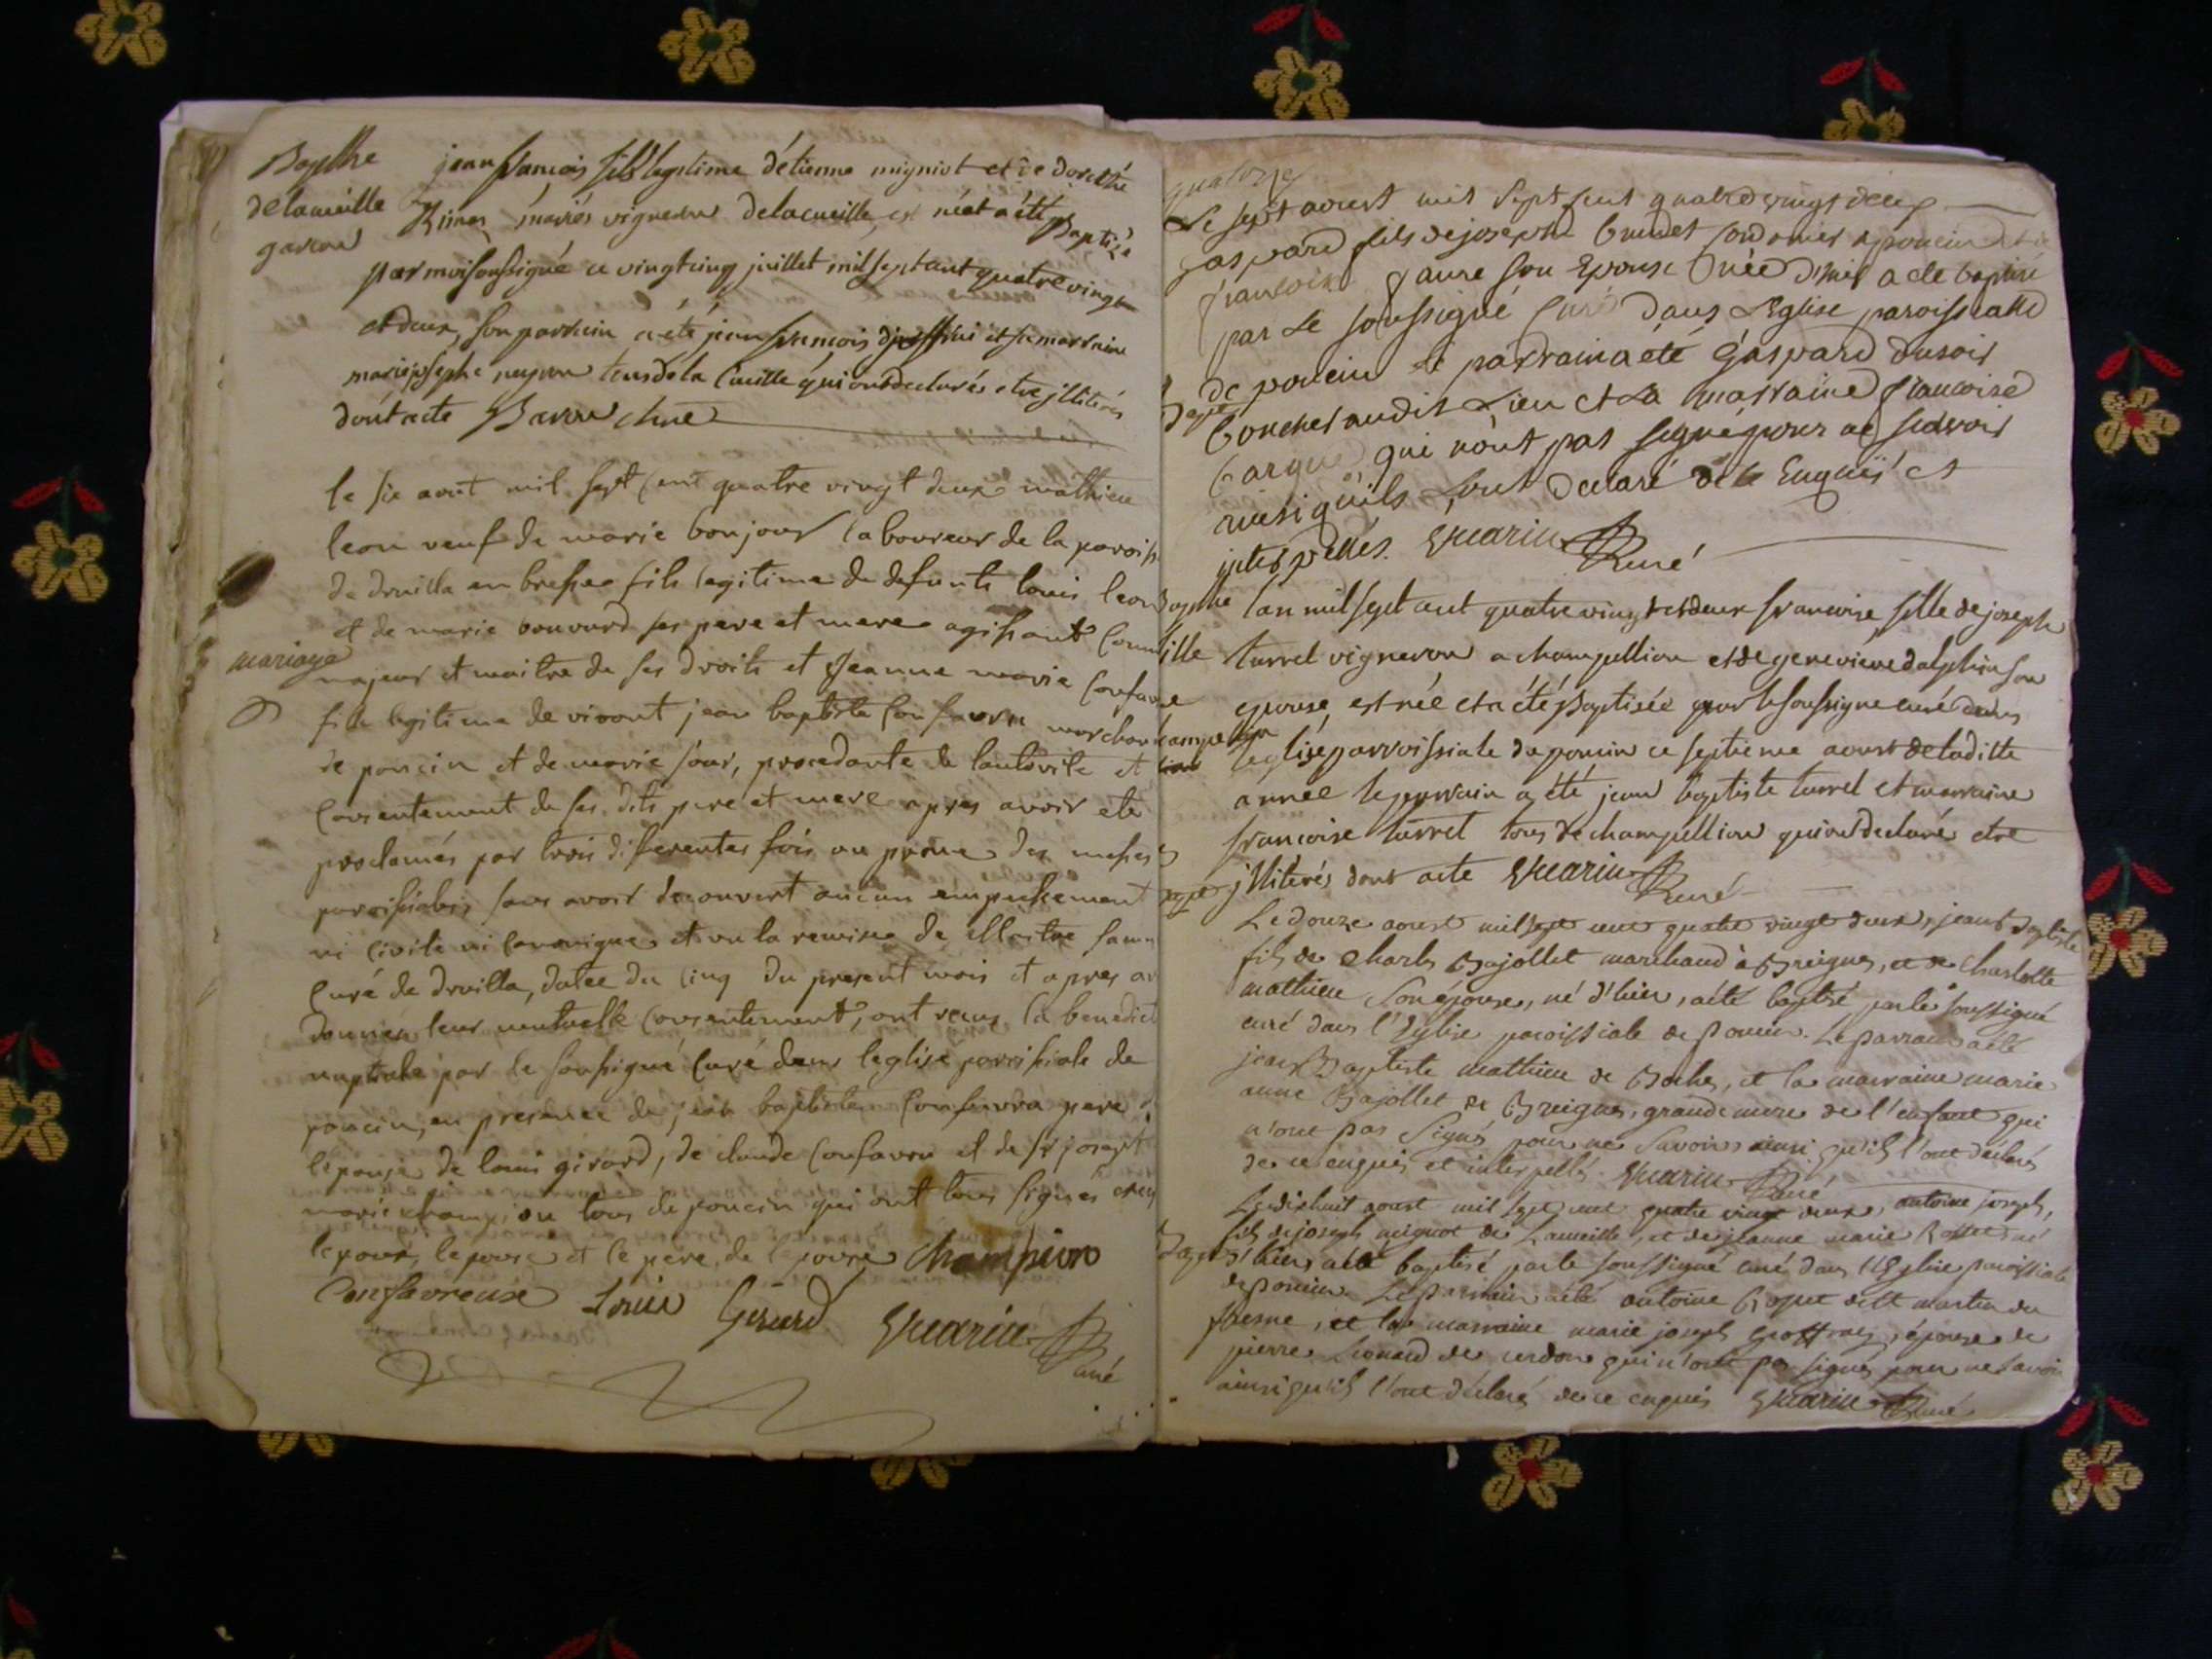 Bapthe
delacueille
garcon
jean francois fils legitime détienne migniot et de dorothé
mariés vigneron delacueille est né et a été Baptisé
par moi soussigné ce vingtcinq juillet mil sept cent quatre vingt
et deux, son parrain a été jean francois et sa marraine
marie josephe tous de la Cueille qui ont declarés etre jlliterés
dont acte Baron Curé
le six avout mil sept cent quatre vingt deux mathieu
leon veuf de marie bonjour laboureur de la paroiss
de druilla en bresse fils legitime de defunts louis leon
et de marie bouvard ses pere et mere agissant comm
mariage
majeur et maitre de ses droits et Jeanne marie Confavre
fille legitime de vivant jean baptiste Confavre marchand
de poncin et de marie four, procedante de lautorité et
Consentement de ses dits pere et mere apres avoir ete
proclamés par trois differentes fois au prone des messes
paroissiales sans avoir decouvert aucun empechement
ni civile ni canonique et vu la remise de Maitre
Curé de druilla, datée du cinq du present mois et apres av
donner leur mutuelle consentement, ont recus la benedict
nuptiale par le soussigné Curé dans leglise paroissiale de
poncin, en presence de jean baptiste Confavre pere
lepouse de louis girard, de claude Confavre et de sr joseph
marie champion tous de poncin qui ont tous signés avec
lepoux, lepouse et le pere de lepouse Champion
Confavreuse Louis Gerard Guarin
Curé
quatorze
Le sept aoust mil sept cent quatre vingt deux
gaspard fils de joseph Cordonier a poncin et de
francoise faure son Epouse née d'hier a ete baptisé
par Le soussigné Curé dans L'Eglise paroissialle
de poncin le parrain a été Gaspard dusoir
Bapte
boucher audit Lieu et La marraine francoise
qui n'ont pas signé pour ne scavoir
ainsi qu'ils L'ont declaré de ce Enquis et
jnterpellés. Guarin
Curé
Bapthe
fille
lan mil sept cent quatre vingt et deux francoise fille de joseph
turrel vigneron a champellion et de genevieve dalphin son
epouse, est née et a été Baptisée par le soussigné curé dans
leglise parroissiale de poncin ce septieme aoust de laditte
année le parrain a été jean baptiste turrel et marraine
francoise turrel tous de champellion qui ont declaré etre
jlliterés dont acte Guarin
Curé
Bapt
Le douze aoust mil sept cent quatre vingt deux, jean Baptiste
fils de Charles Bajollet marchand à Breignes, et de Charlotte
mathieu son épouse, né d'hier, a été baptisé par le soussigné
curé dans l'Eglise paroissiale de Poncin. Le parrain a été
jean Baptiste mathieu de Boches, et la marraine marie
anne Bajollet de Breignes, grande mere de l'enfant qui
n'ont pas signés pour ne savoir ainsi qu'ils l'ont déclaré
de ce enquis et interpellé. Guarin Curé
Le dixhuit aoust mil sept cent quatre vingt deux, antoine joseph,
fils de joseph mignot de Lacueille, et de jeanne marie né
Bapt
d'hier a été baptisé par le soussigné curé dans l'Eglise paroissiale
de Poncin. Le Parrain a été antoine de St martin du
fresne, et la marraine marie joseph épouse de
pierre Leonard de cerdon qui n'ont pas signés pour ne savoir
ainsi qu'ils l'ont déclaré de ce enquis Guarin Curé